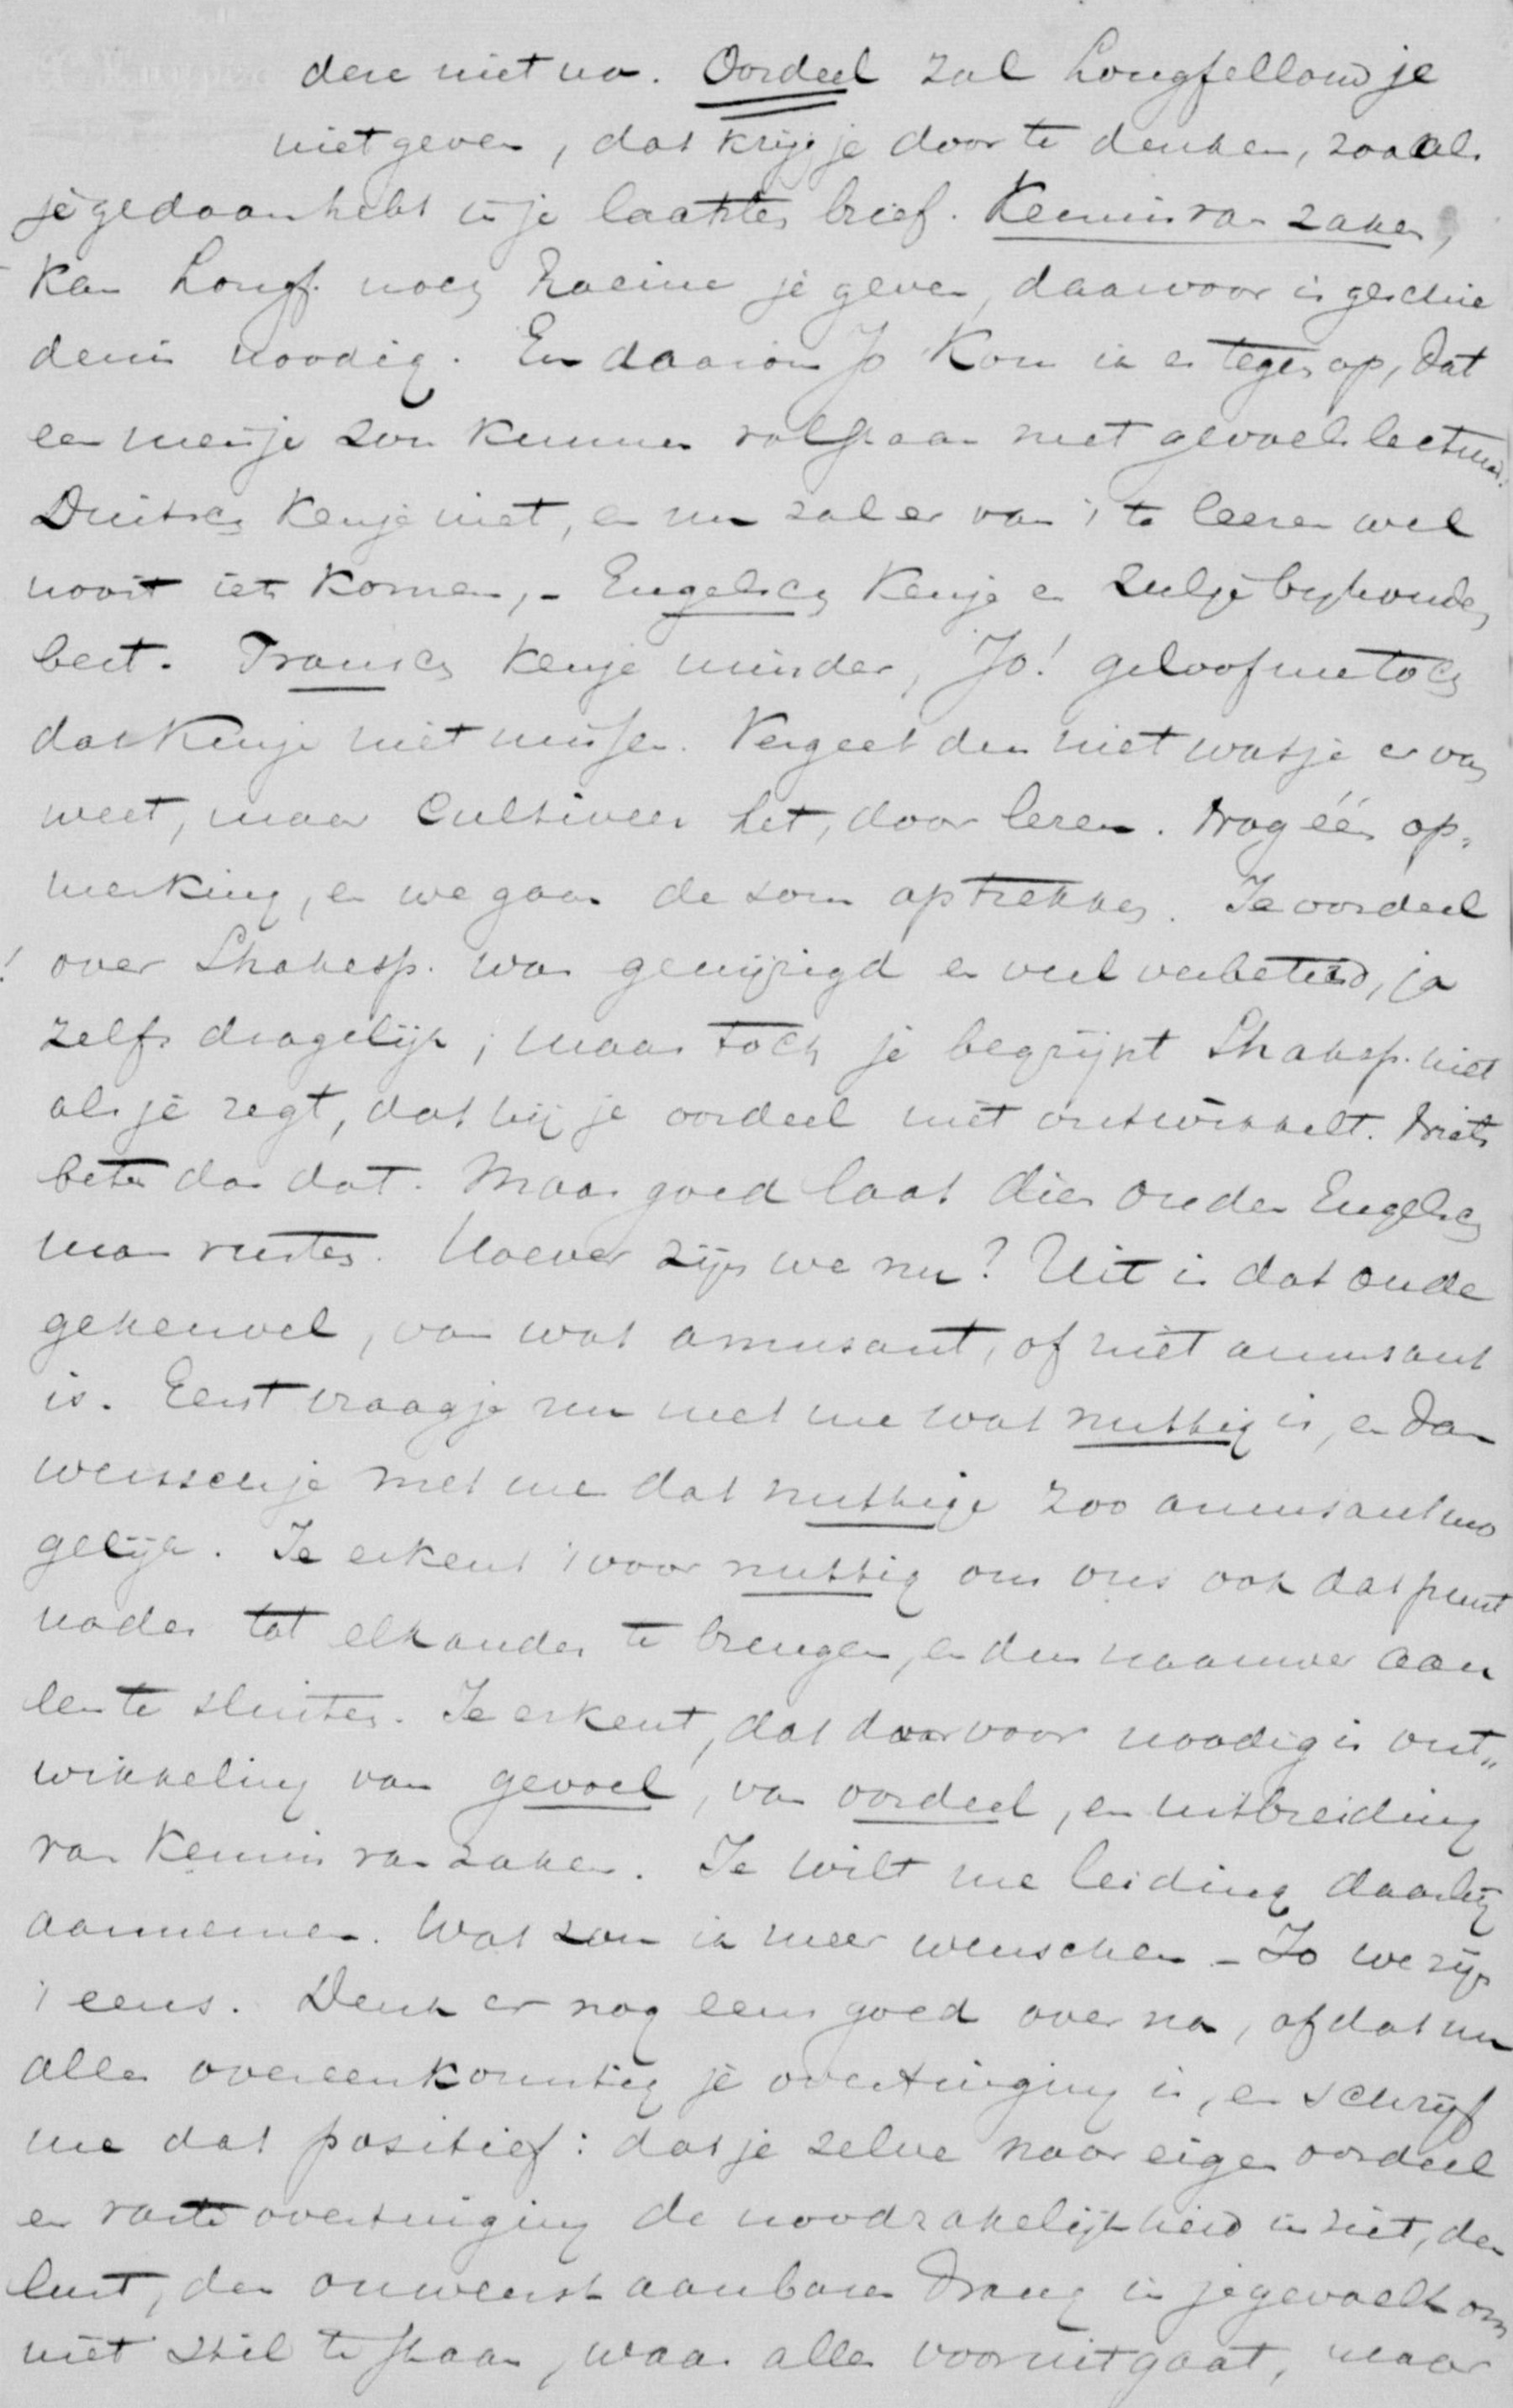 dere niet na. Oordeel zal Longfellow je
niet geven, dat krijg je door te denken, zooals
je gedaan hebt in je laatsten brief. Kennis van zaken,
kan Longf. noch Racine je geven, daarvoor is geschie
denis noodig. En daarom Jo kom ik er tegen op, dat
een meisje zou kunnen volstaan met gevoelslectuur.
Duitsch ken je niet, en nu zal er van 't te leeren wel
nooit iets komen, - Engelsch ken je en zul je byhouden
best. Fransch ken je minder, Jo! geloof me toch
dat kun je niet missen. Vergeet dus niet wat je er van
weet, maar cultiveer het, door lezen. Nog één op-
merking, en we gaan de som optrekken. Je oordeel
over Shakesp. was gewijzigd en veel verbeterd, ja
zelfs dragelijk; maar toch je begrijpt Shakesp. niet
als je zegt, dat hij je oordeel niet ontwikkelt. Niets
beter dan dat. Maar goed laat dien ouden Engelsch
man rusten. Hoever zijn we nu? Uit is dat oude
gekeuvel, van wat amusant, of niet amusant
is. Eerst vraag je nu met me wat nuttig is, en dan
wenschen je met me dat nuttige zoo amusant mo
gelijk. Je erkent 't voor nuttig om ons ook dat punt
nader tot elkander te brengen, en dus naauwer aan
een te sluiten. Je erkent, dat daarvoor noodig is ont„
wikkeling van gevoel, van oordeel, en uitbreiding
van kennis van zaken. Je wilt me leiding daarbij
aannemen. Wat zou ik meer wenschen - Jo we zijn
't eens. Denk er nog eens goed over na, of dat nu
alles overeenkomstig je overtuiging is, en schrijf
me dat positief: dat je zelve naar eigen oordeel
en vaste overtuiging de noodzakelijkheid inziet, den
lust, den onweerstaanbaren drang in je gevoelt om
niet stil te staan, waar alles vooruitgaat, maar